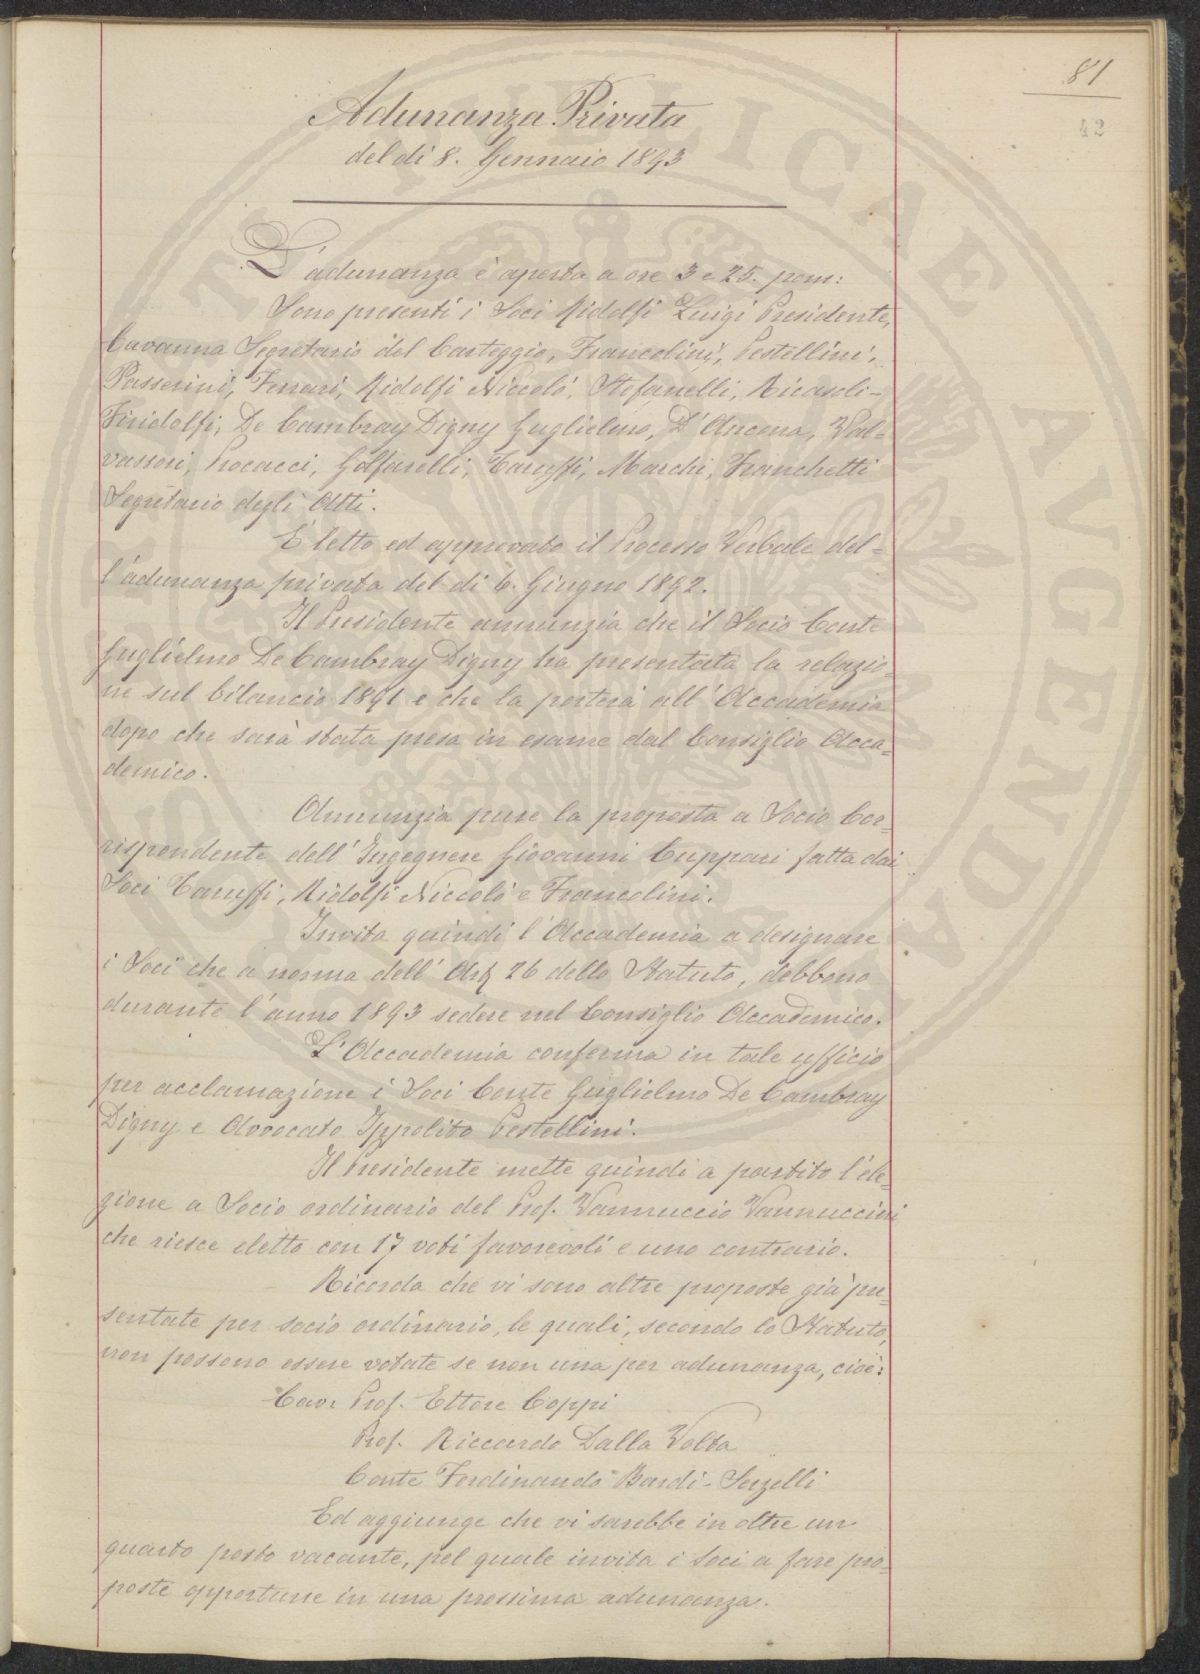 81
42
Adunanza Privata
del dì 8. Gennaio 1893
L'adunanza è aperta a ore 3 e 25. pom:
Sono presenti i Soci Ridolfi Luigi Presidente,
Cavanna Segretario del Carteggio, Francolini, Pestellini,
Passerini, Ferrari, Ridolfi Niccolò, Stefanelli, Ricasoli-
Firidolfi, De Cambray Digny Guglielmo, D'Ancona, Val=
vassori, Procacci, Golfarelli, Taruffi, Marchi, Franchetti
Segretario degli Atti.
È letto ed approvato il Processo Verbale del=
l'adunanza privata del dì 6. Giugno 1892.
Il Presidente annunzia che il Socio Conte
Guglielmo De Cambray Digny ha presentata la relazio=
ne sul bilancio 1891 e che la porterà all'Accademia
dopo che sarà stata presa in esame dal Consiglio Acca=
demico.
Annunzia pure la proposta a Socio Cor=
rispondente dell'Ingegnere Giovanni Cuppari fatta dai
Soci Taruffi, Ridolfi Niccolò e Francolini.
Invita quindi l'Accademia a designare
i Soci che a norma dell'Art. 26 dello Statuto, debbono
durante l'anno 1893 sedere nel Consiglio Accademico.
L'Accademia conferma in tale ufficio
per acclamazione i Soci Conte Guglielmo De Cambray
Digny e Avvocato Ippolito Pestellini.
Il Presidente mette quindi a partito l'ele=
zione a Socio ordinario del Prof. Vannuccio Vannuccini
che riesce eletto con 17 voti favorevoli e uno contrario.
Ricorda che vi sono altre proposte già pre=
sentate per socio ordinario, le quali, secondo lo Statuto,
non possono essere votate se non una per adunanza, cioè:
Cav. Prof. Ettore Coppi
Prof. Riccardo Dalla Volta
Conte Ferdinando Bardi-Serzelli
Ed aggiunge che vi sarebbe in oltre un
quarto posto vacante, pel quale invita i Soci a fare pro=
poste opportune in una prossima adunanza.